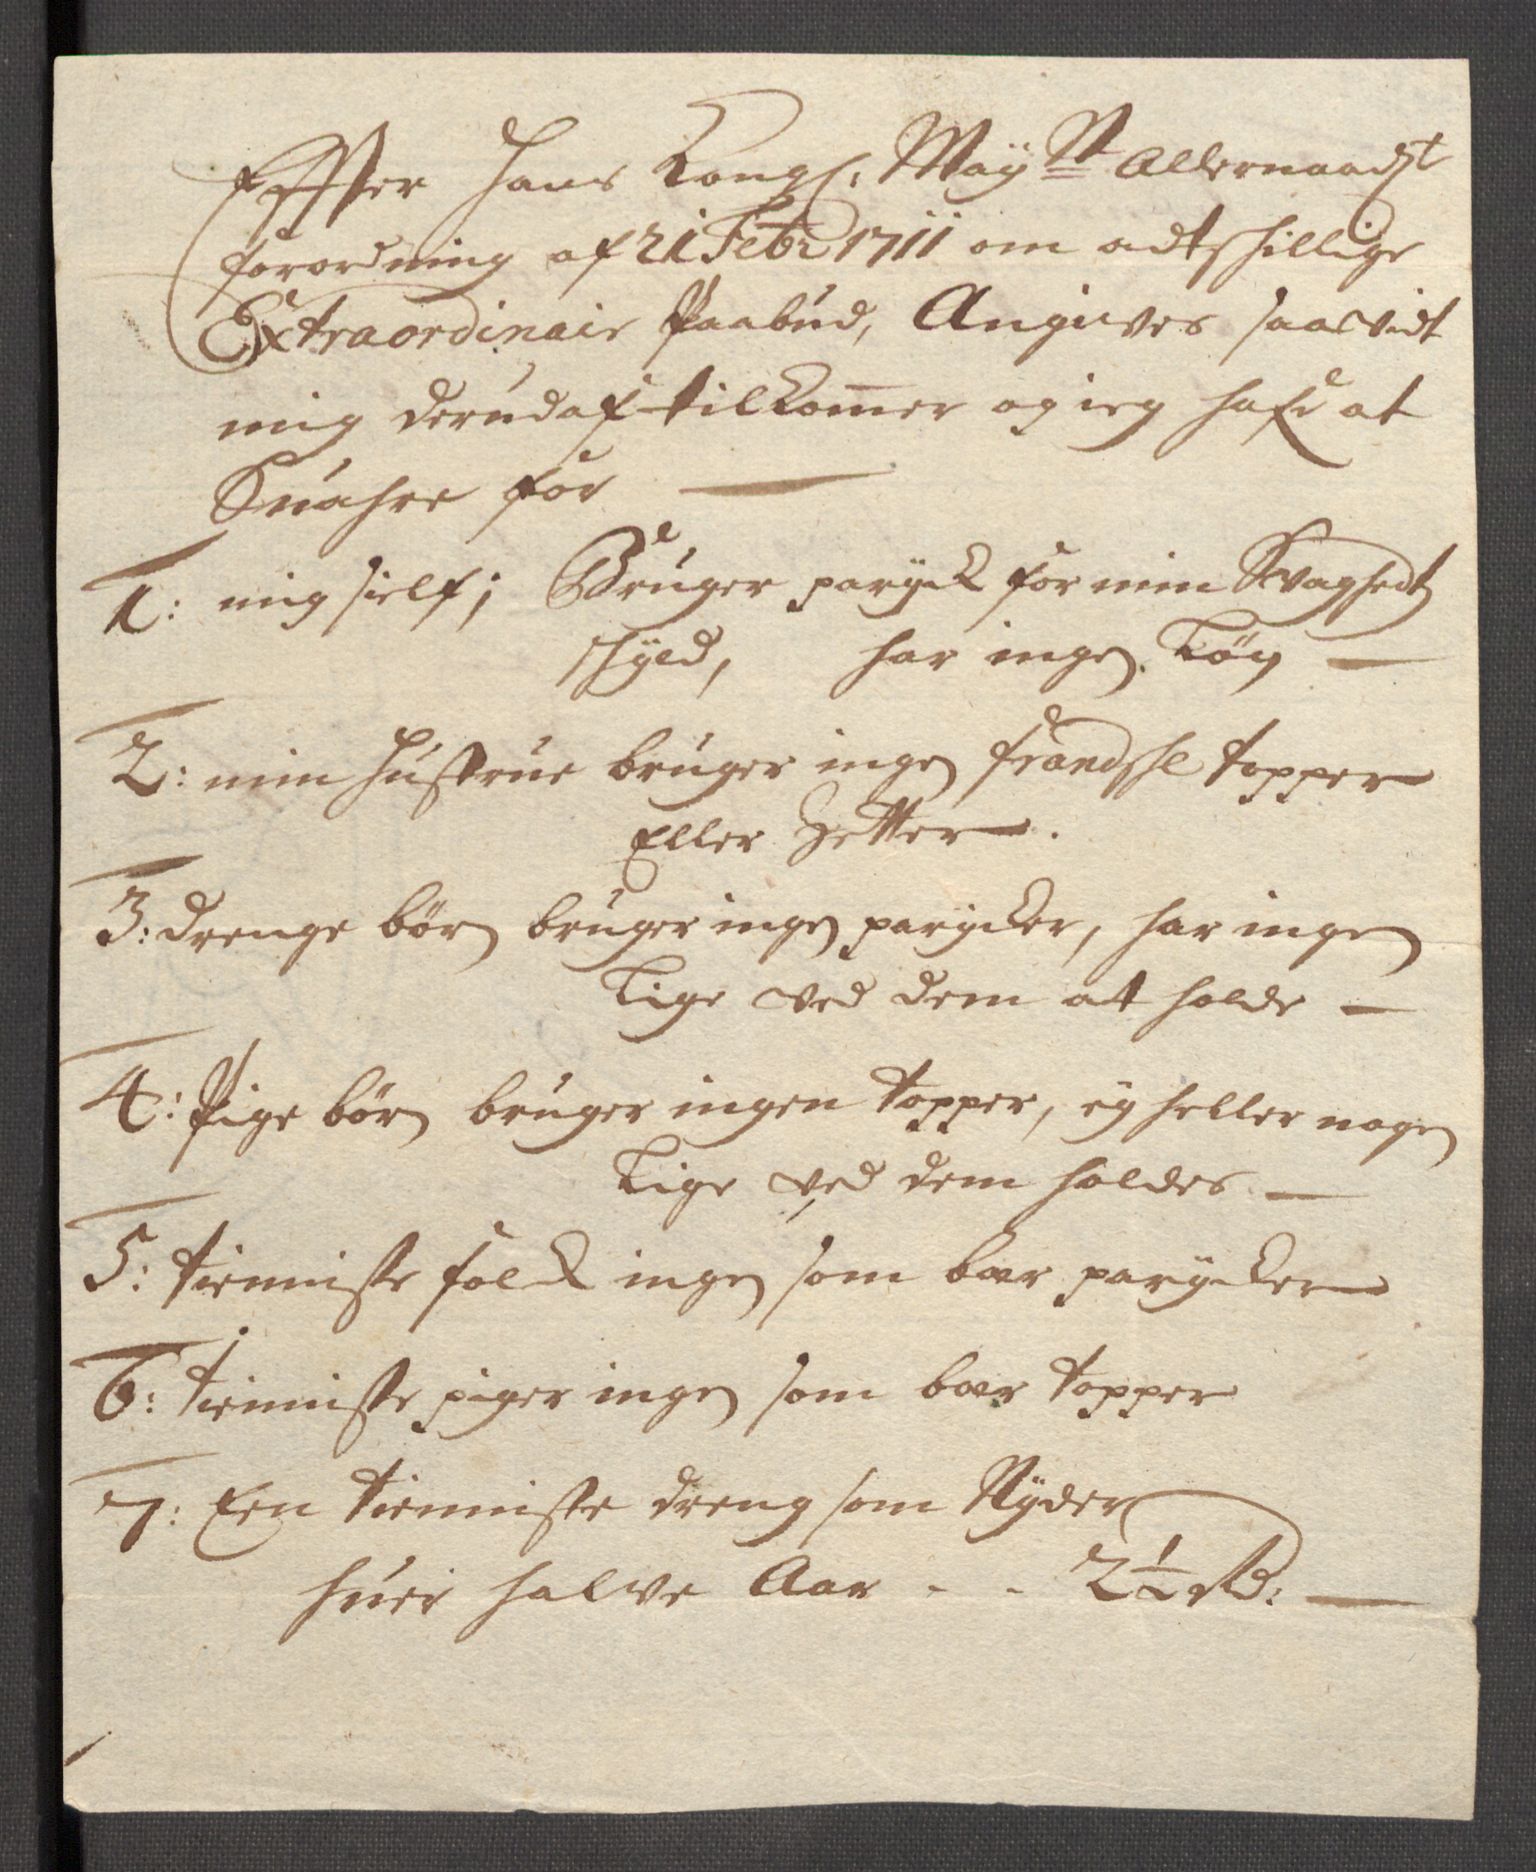 Effter Hans Kongl. Maÿ tt Allernaadst
forordning af 21 Febr 1711 om adtskillige
Extraordinair Paabud, Angives saavidt
mig derudaf tilkom̅er og ieg hafr at
Suahre for
1: mig sielf; Bruger paryck for min Svagheds
skyld, har ingen Løn
2: min Hustrue bruger ingen frandske topper
Eller Setter.
3: drenge børn bruger ingen parycker, har ingen
Lige ved dem at holde
4: Pige børn bruger ingen topper, eÿ heller nogen
Lige ved dem holdes
5: tienniste folck ingen som bær parycker
6: tienniste piger ingen som bær topper
7: Een tienniste dreng som Nÿder
huer halve Aar - - 2½ Rd: